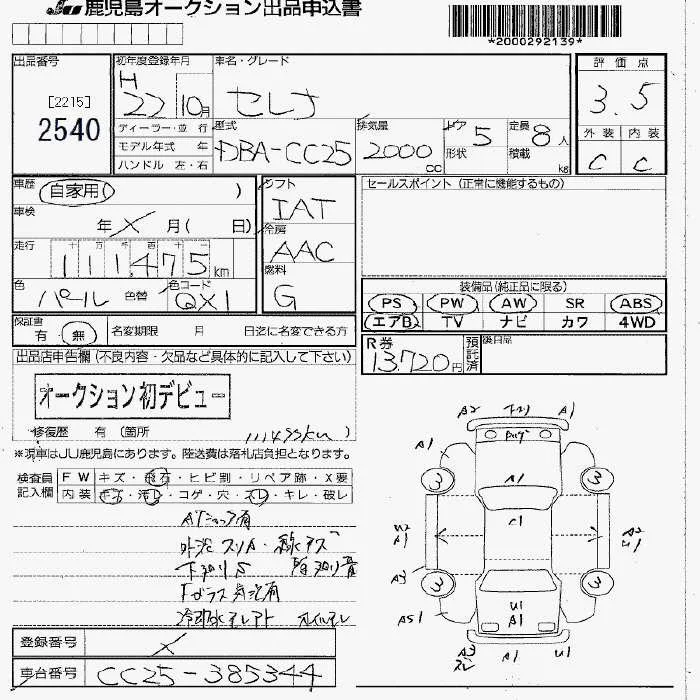 JU 鹿児島オークション出品申込書
*2000292139*
出品番号
[2215]
2540
初年度登録年月
H
22 10月
車名・グレード
セレナ
評価点
3.5
外装 内装
C C
ディーラー・並行
モデル年式 年
ハンドル 左・右
型式
DBA-CC25
排気量
2000 cc
ドア 5
形状
定員 8人
積載 kg
車歴 自家用( )
車検
年 X 月( 日)
走行
十 万 千 百 十
111,475 km
色 パール 色替
色コード QX1
シフト
IAT
冷房
AAC
燃料
G
セールスポイント (正常に機能するもの)
装備品(純正品に限る)
PS PW AW SR ABS
エアB TV ナビ カワ 4WD
保証書
有 無
名変期限 月 日迄に名変できる方
R券
13,720円
預託済
後日品
出品店申告欄 (不良内容・欠品など具体的に記入して下さい)
オークション初デビュー
修復歴 有 (箇所 )
111495km
※現車はJU鹿児島にあります。陸送費は落札店負担となります。
検査員
記入欄
FW キズ・飛石・ヒビ割・リペア跡・X要
内装 キズ・汚レ・コゲ・穴・スレ・キレ・破レ
ATショック有
外装 スリA・線キズ
下廻りS
Fガラス 有
冷却水モレアト オイルモレ
登録番号
X
車台番号
CC25-385344
A2 下廻り A1
A1
A1
3 3
C1
U2
A1
A2
U1
A3
3 3
AS1
U1
A1
A3
A1 U1